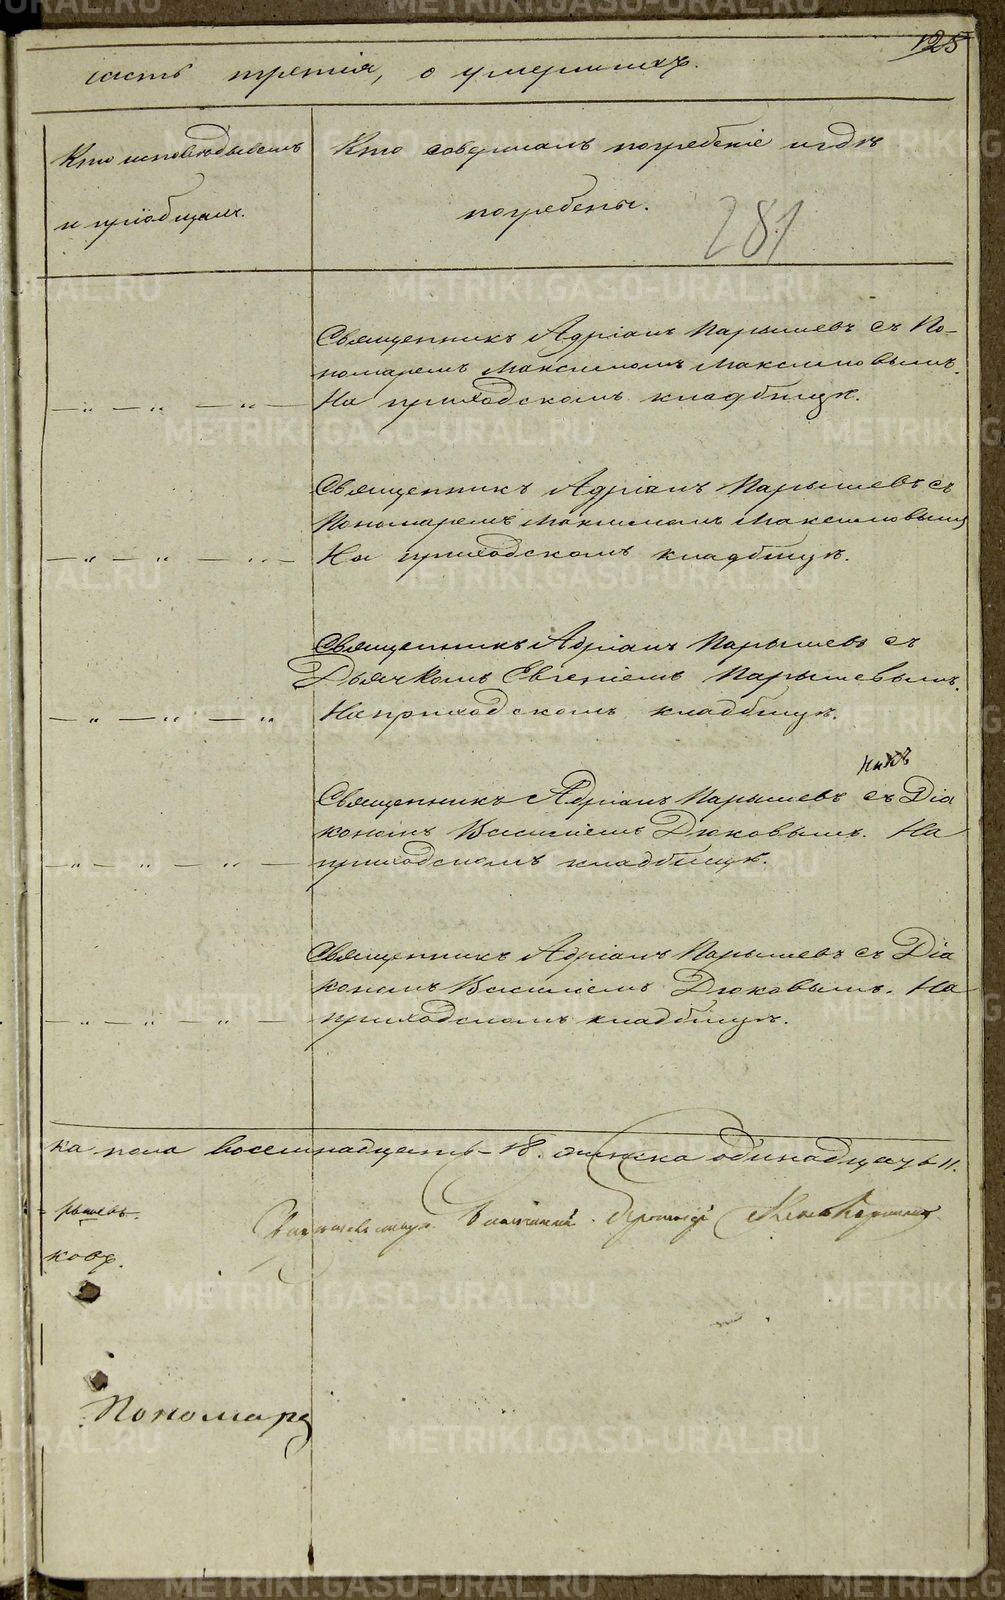 125
часть третія, о умершихъ.
Кто исповѣдывалъ
и пріобщалъ.
Кто совершалъ погребеніе и гдѣ
погребены.
281
Священникъ Адріанъ Парышевъ съ По-
номаремъ Максимомъ Максимовымъ.
На приходскомъ кладбищѣ.
Священникъ Адріанъ Парышевъ съ
Пономаремъ Максимомъ Максимовымъ
На приходскомъ кладбищѣ.
Священникъ Адріанъ Парышевъ съ
Дьячкомъ Евгеніемъ Парышевымъ.
На приходскомъ кладбищѣ.
Священникъ Адріанъ Парышевъ съ Діа
кономъ Василіемъ Дюковымъ. На
приходскомъ кладбищѣ.
Священникъ Адріанъ Парышевъ съ Діа
кономъ Василіемъ Дюковымъ. На
приходскомъ кладбищѣ.
ка пола восемнадцать – 18. женска одинадцать 11.
рышевъ.
ковъ.
Пономарь
METRIKI.GASO-URAL.RU